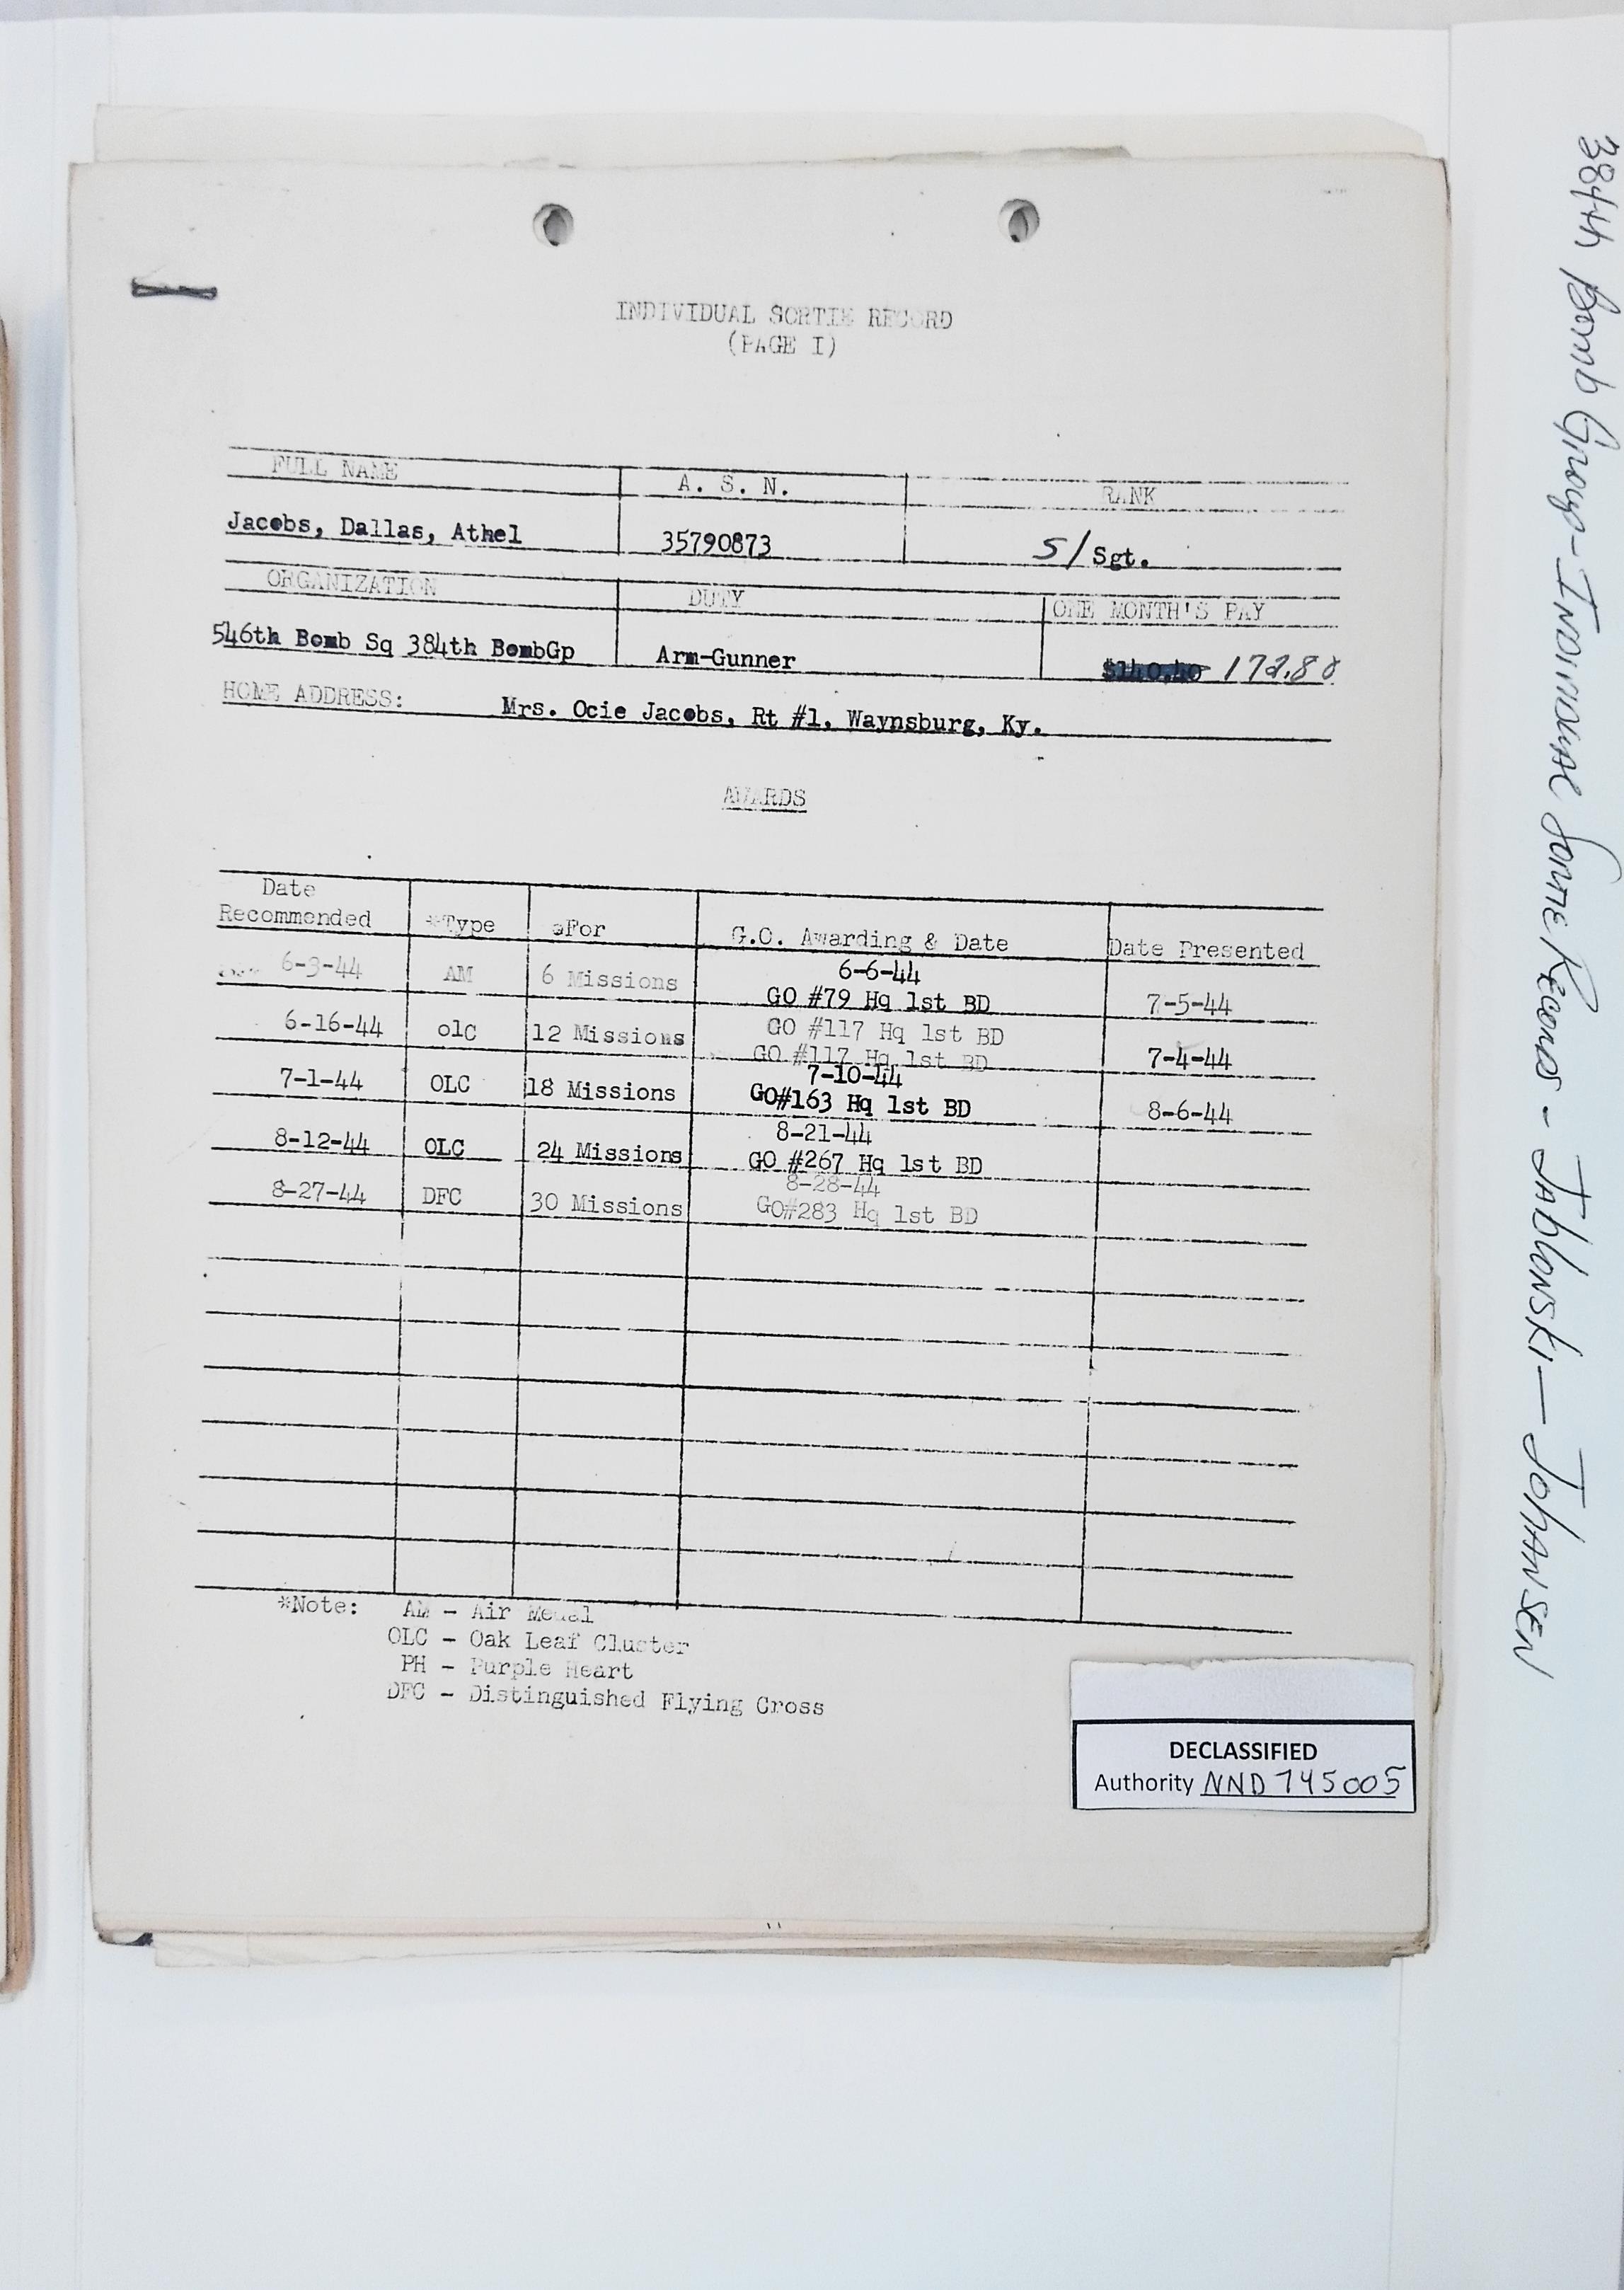 INDIVIDUAL SORTIE RECORD
(PAGE I)
FULL NAME A. S. N. RANK
Jacobs, Dallas, Athel 35790873 S/Sgt.
ORGANIZATION DUTY ONE MONTH'S PAY
546th Bomb Sq 384th BombGp Arm-Gunner $140.40 172.80
HOME ADDRESS: Mrs. Ocie Jacobs, Rt #1, Waynsburg, Ky.
AWARDS
Date
Recommended *Type *For G.O. Awarding & Date Date Presented
6-6-44
6-3-44 AM 6 Missions GO #79 Hq 1st BD 7-5-44
6-16-44 olC 12 Missions GO #117 Hq 1st BD
GO #117 Hq 1st BD 7-4-44
7-10-44
7-1-44 OLC 18 Missions GO#163 Hq 1st BD 8-6-44
8-21-44
8-12-44 OLC 24 Missions GO #267 Hq 1st BD
8-28-44
8-27-44 DFC 30 Missions GO#283 Hq 1st BD
*Note: AM - Air Medal
OLC - Oak Leaf Cluster
PH - Purple Heart
DFC - Distinguished Flying Cross
DECLASSIFIED
Authority NND 745005
384th Bomb Group - Individual Sortie Records - Jablonski — Johansen